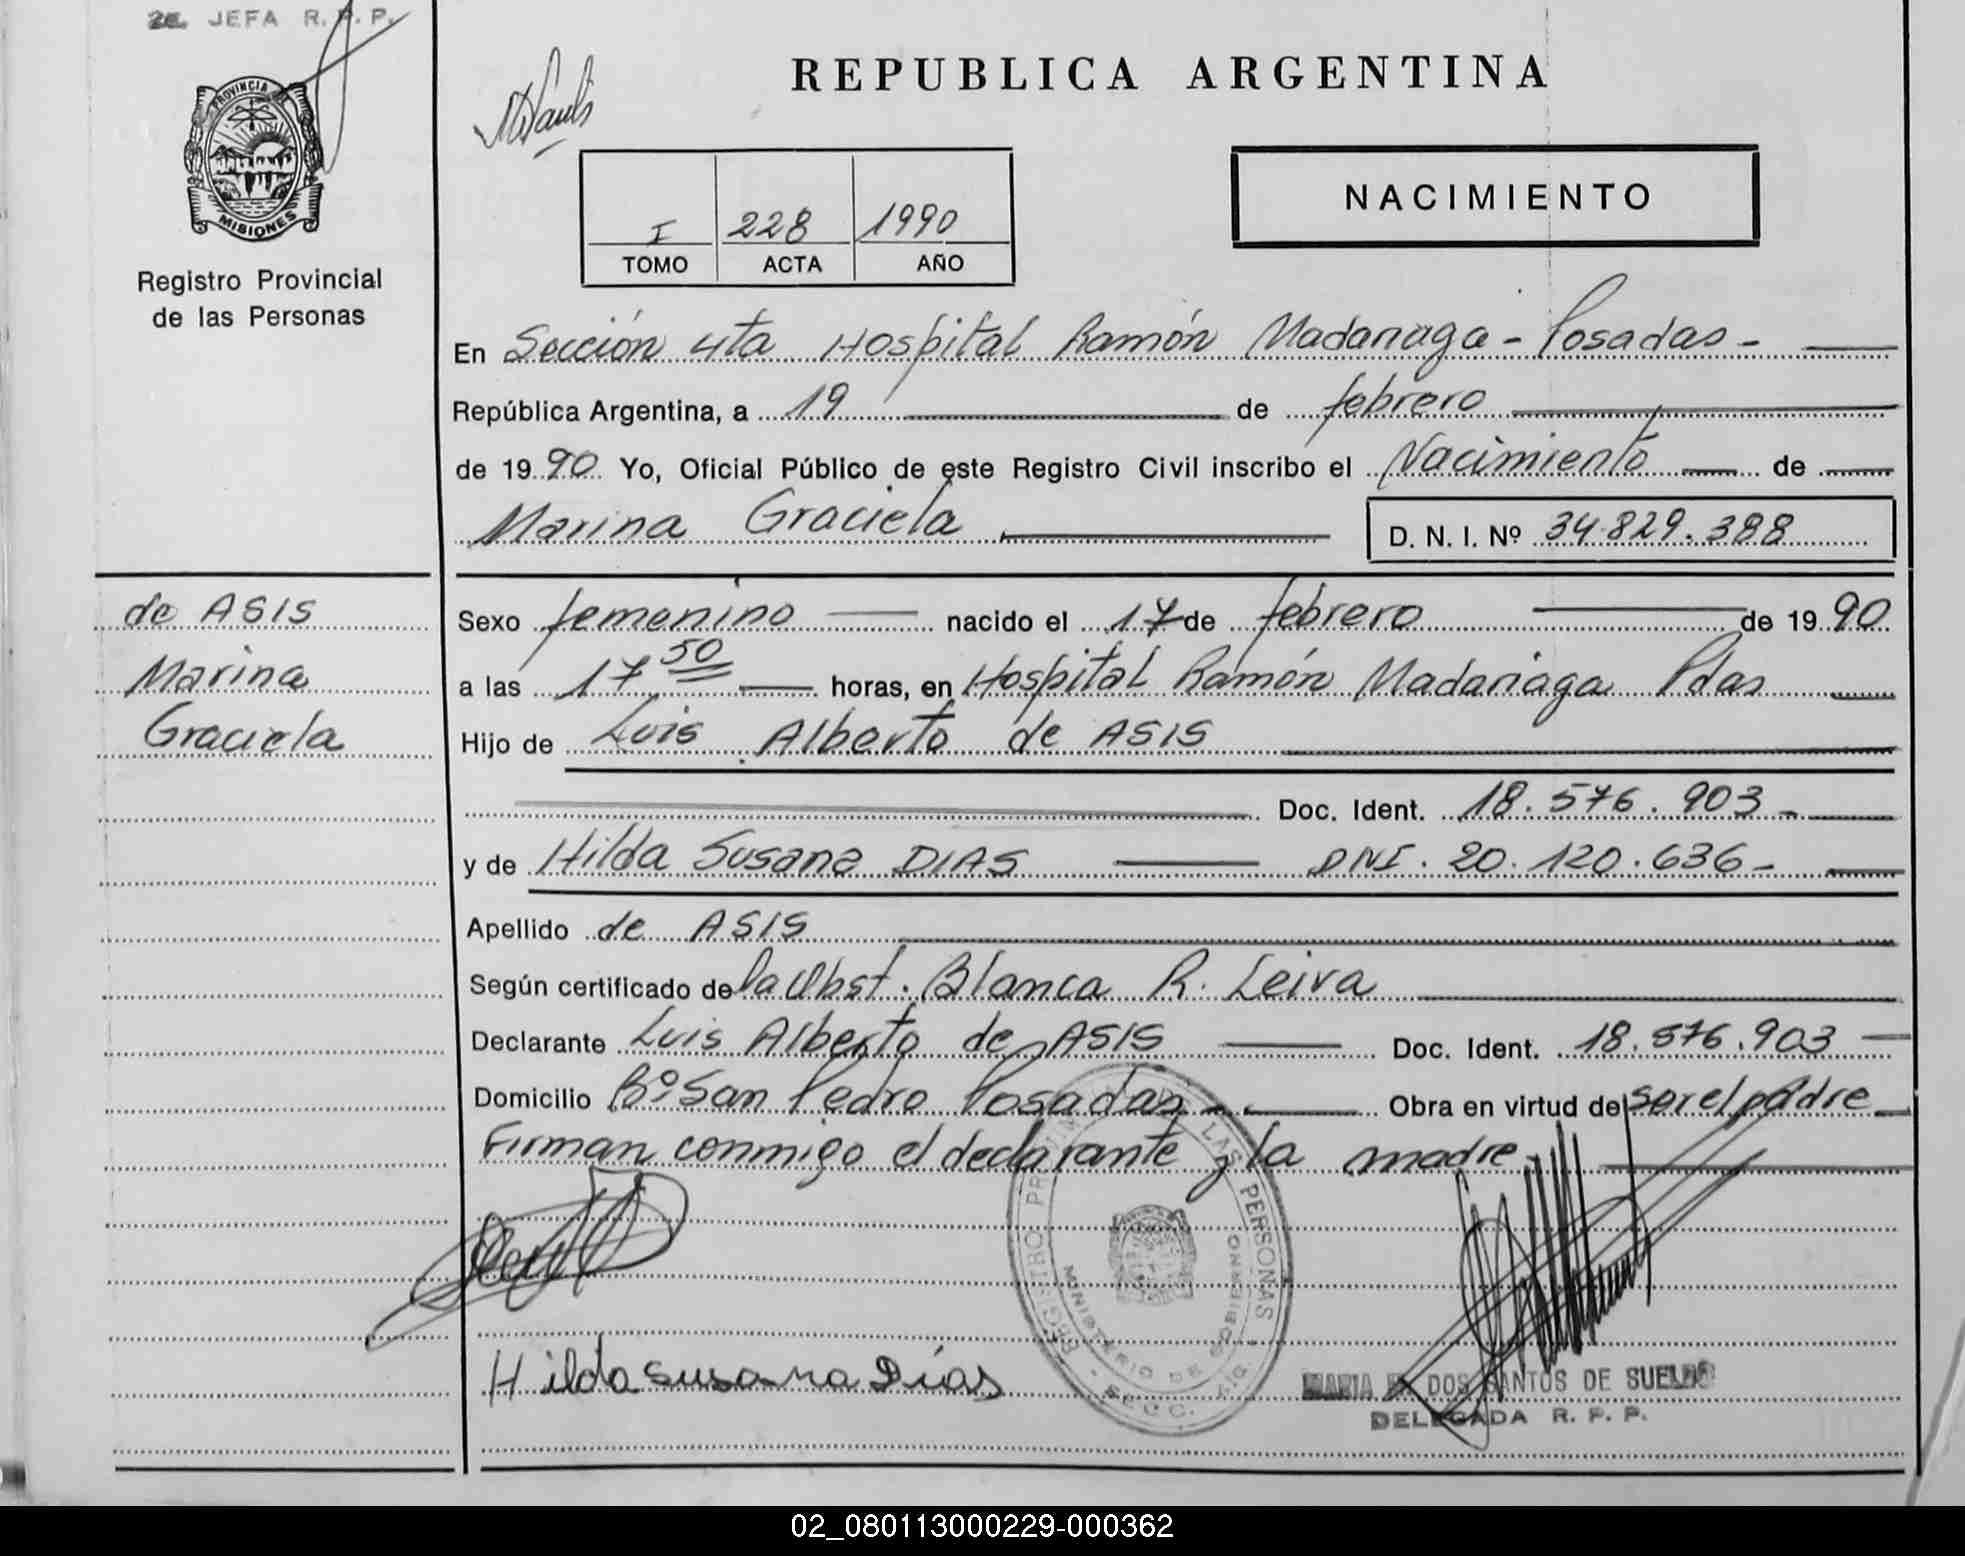 2a. JEFA R.P.P.
PROVINCIA DE
MISIONES
Registro Provincial
de las Personas
REPUBLICA ARGENTINA
NACIMIENTO
I 228 1990
TOMO ACTA AÑO
En Sección 4ta Hospital Ramón Madariaga - Posadas -
República Argentina, a 19 de febrero
de 1990 Yo, Oficial Público de este Registro Civil inscribo el Nacimiento de
Marina Graciela D. N. I. Nº 34.829.388
de ASIS
Marina
Graciela
Sexo femenino nacido el 17 de febrero de 1990
a las 17 50 horas, en Hospital Ramón Madariaga Pdas
Hijo de Luis Alberto de ASIS
Doc. Ident. 18.576.903 -
y de Hilda Susana DIAS DNI. 20.120.636 -
Apellido de ASIS
Según certificado de la Obst. Blanca R. Leiva
Declarante Luis Alberto de ASIS Doc. Ident. 18.576.903
Domicilio Bº San Pedro Posadas - Obra en virtud de ser el padre
Firman conmigo el declarante y la madre.
REGISTRO PROVINCIAL DE LAS PERSONAS
MINISTERIO DE GOBIERNO
Hilda Susana Días
MARIA DOS SANTOS DE SUELDO
DELEGADA R. P. P.
02_080113000229-000362